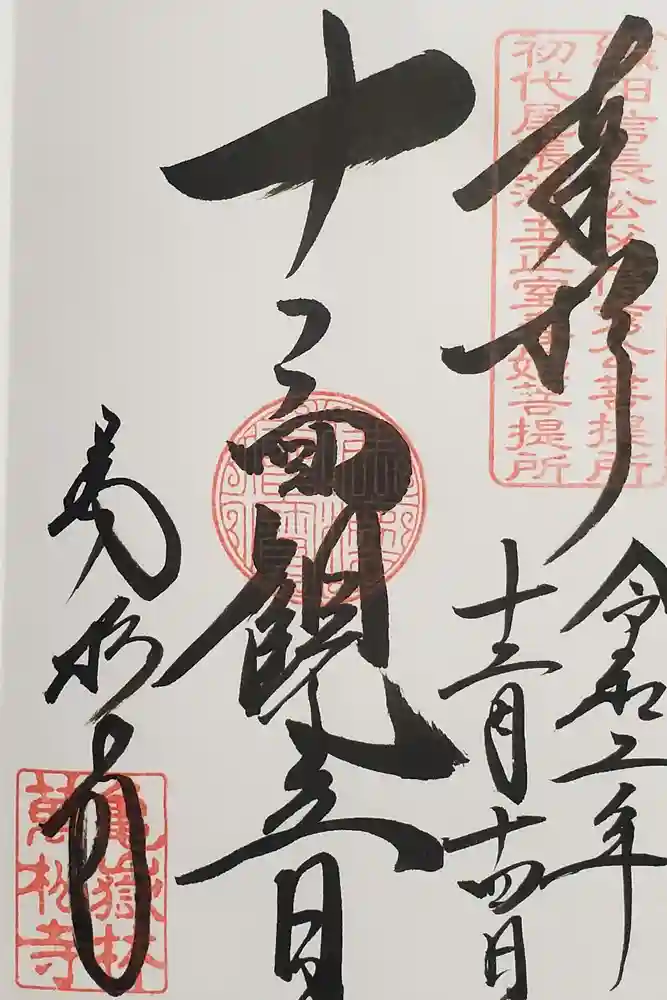 奉拝
織田信長公父信秀公菩提所
初代尾張藩主正室春姫菩提所
令和二年
十二月十四日
十一面観音
萬松寺
龜嶽林
萬松寺